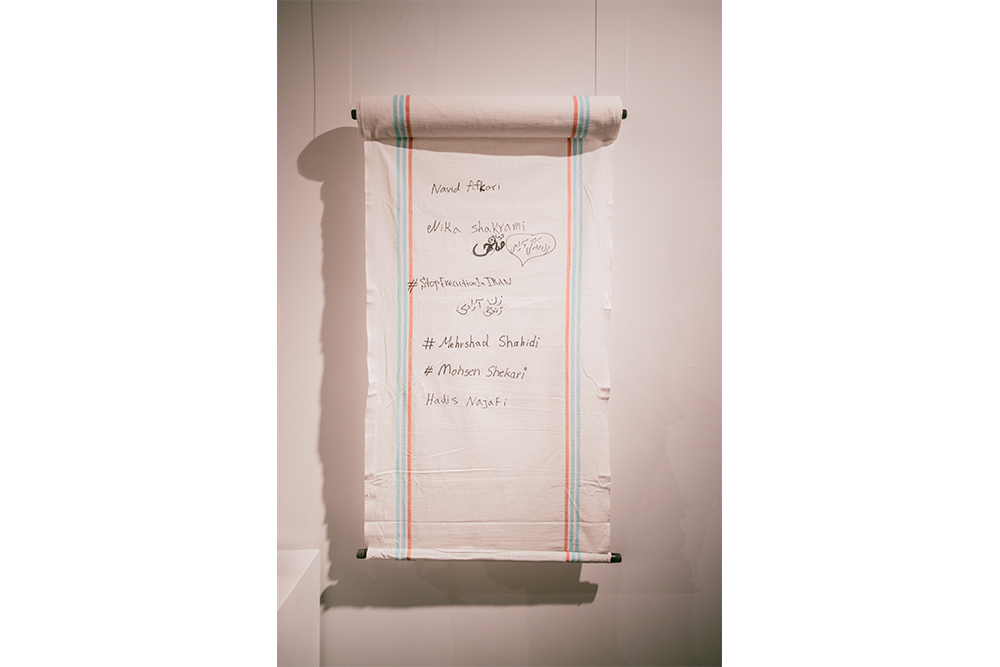 Navid Afkari
Nika shakrami
#StopExecutionInIRAN
زن
زندگی آزادی
# Mehrshad Shahidi
# Mohsen Shekari
Hadis Najafi